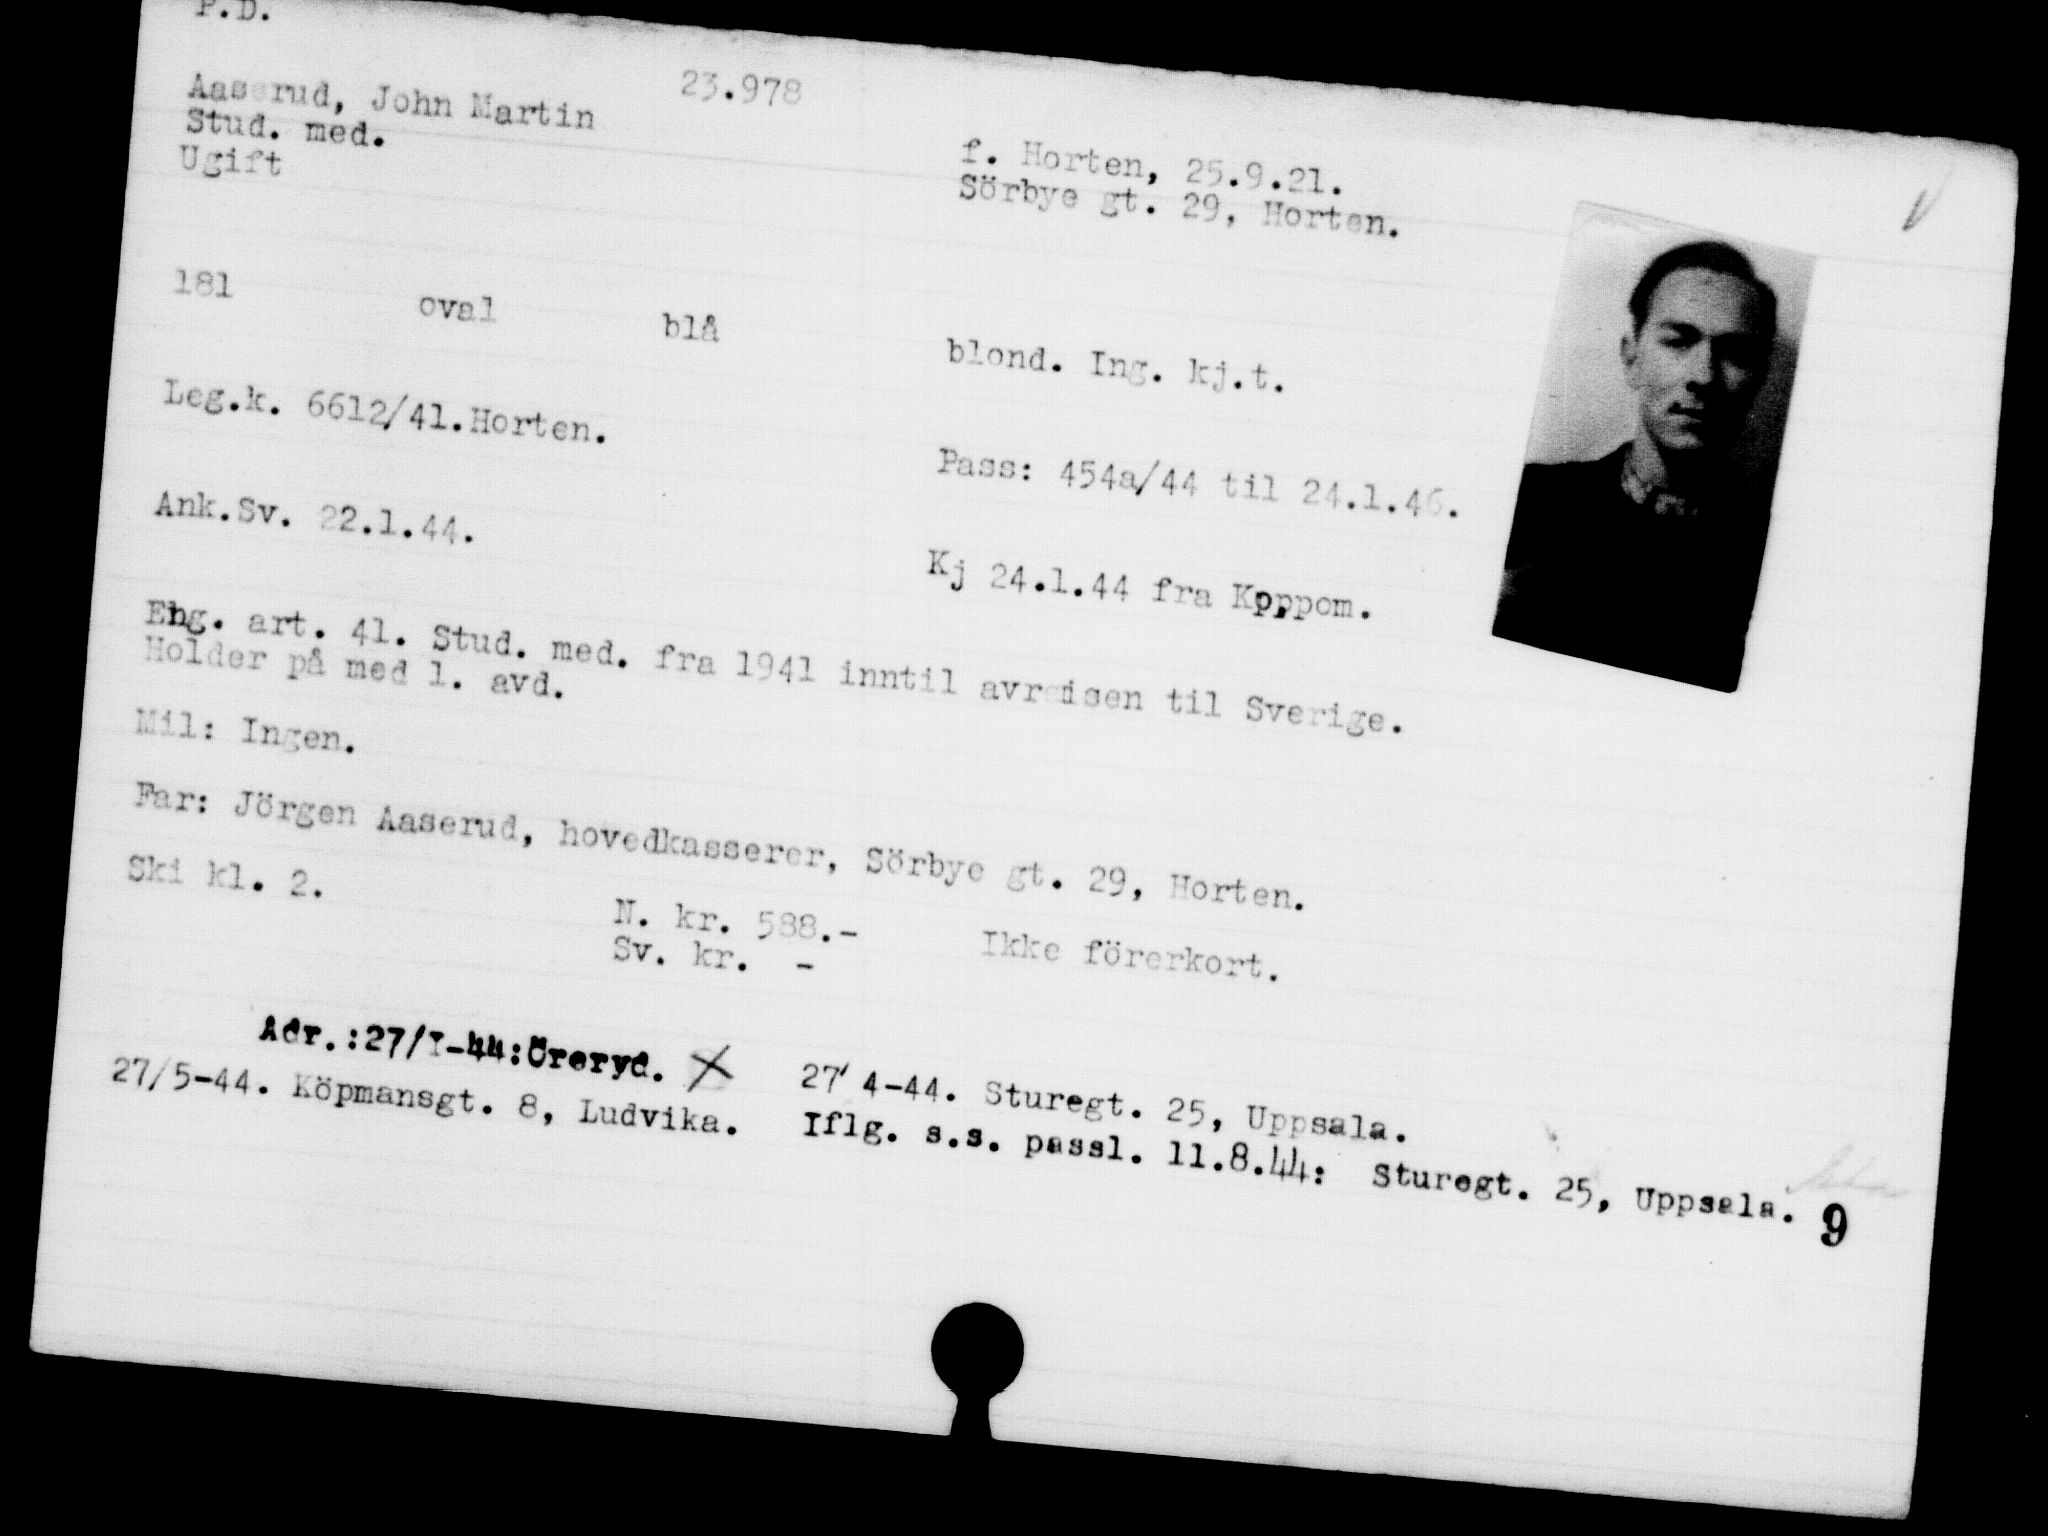 P.D.
23.978
Aaserud, John Martin
Stud. med.
Ugift
f. Horten, 25.9.21.
Sörbye gt. 29, Horten.
181 oval blå blond. Ing. kj.t.
Leg.k. 6612/41.Horten.
Pass: 454a/44 til 24.1.46.
Ank.Sv. 22.1.44.
Kj 24.1.44 fra Koppom.
Eng. art. 41. Stud. med. fra 1941 inntil avreisen til Sverige.
Holder på med 1. avd.
Mil: Ingen.
Far: Jörgen Aaserud, hovedkasserer, Sörbye gt. 29, Horten.
Ski kl. 2.
N. kr. 588.- Ikke förerkort.
Sv. kr. -
Adr.:27/I-44:Öreryd. X 27/4-44. Sturegt. 25, Uppsala.
27/5-44. Köpmansgt. 8, Ludvika. Iflg. s.s. passl. 11.8.44: Sturegt. 25, Uppsala.
9